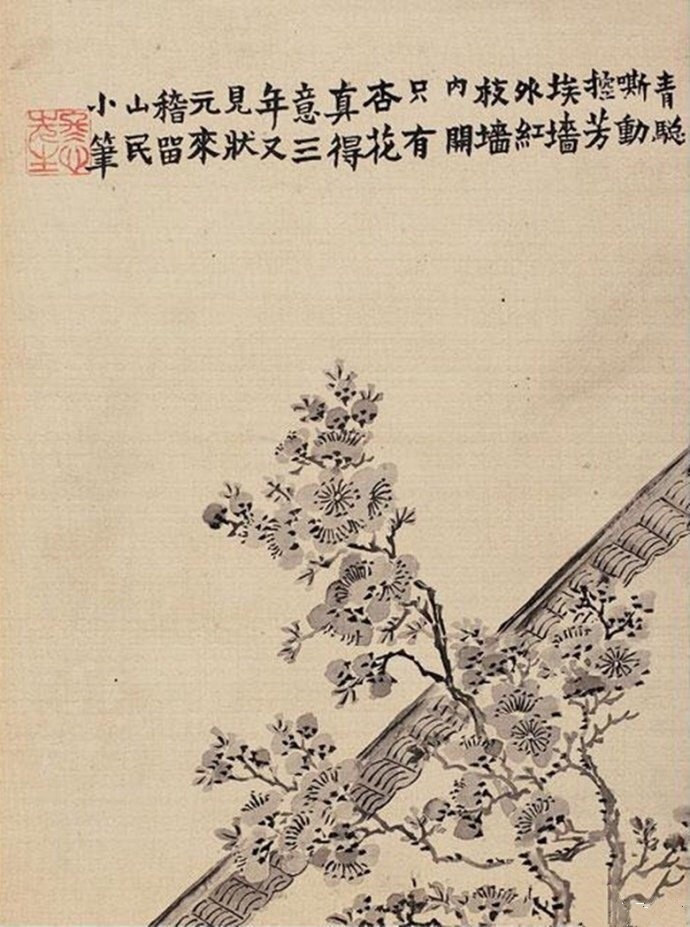 青驄
嘶動
控芳
埃墻
外紅
枝墻
内開
只有
杏花
真得
意三
年又
見狀
元來
稽留
山民
小筆
冬心
先生